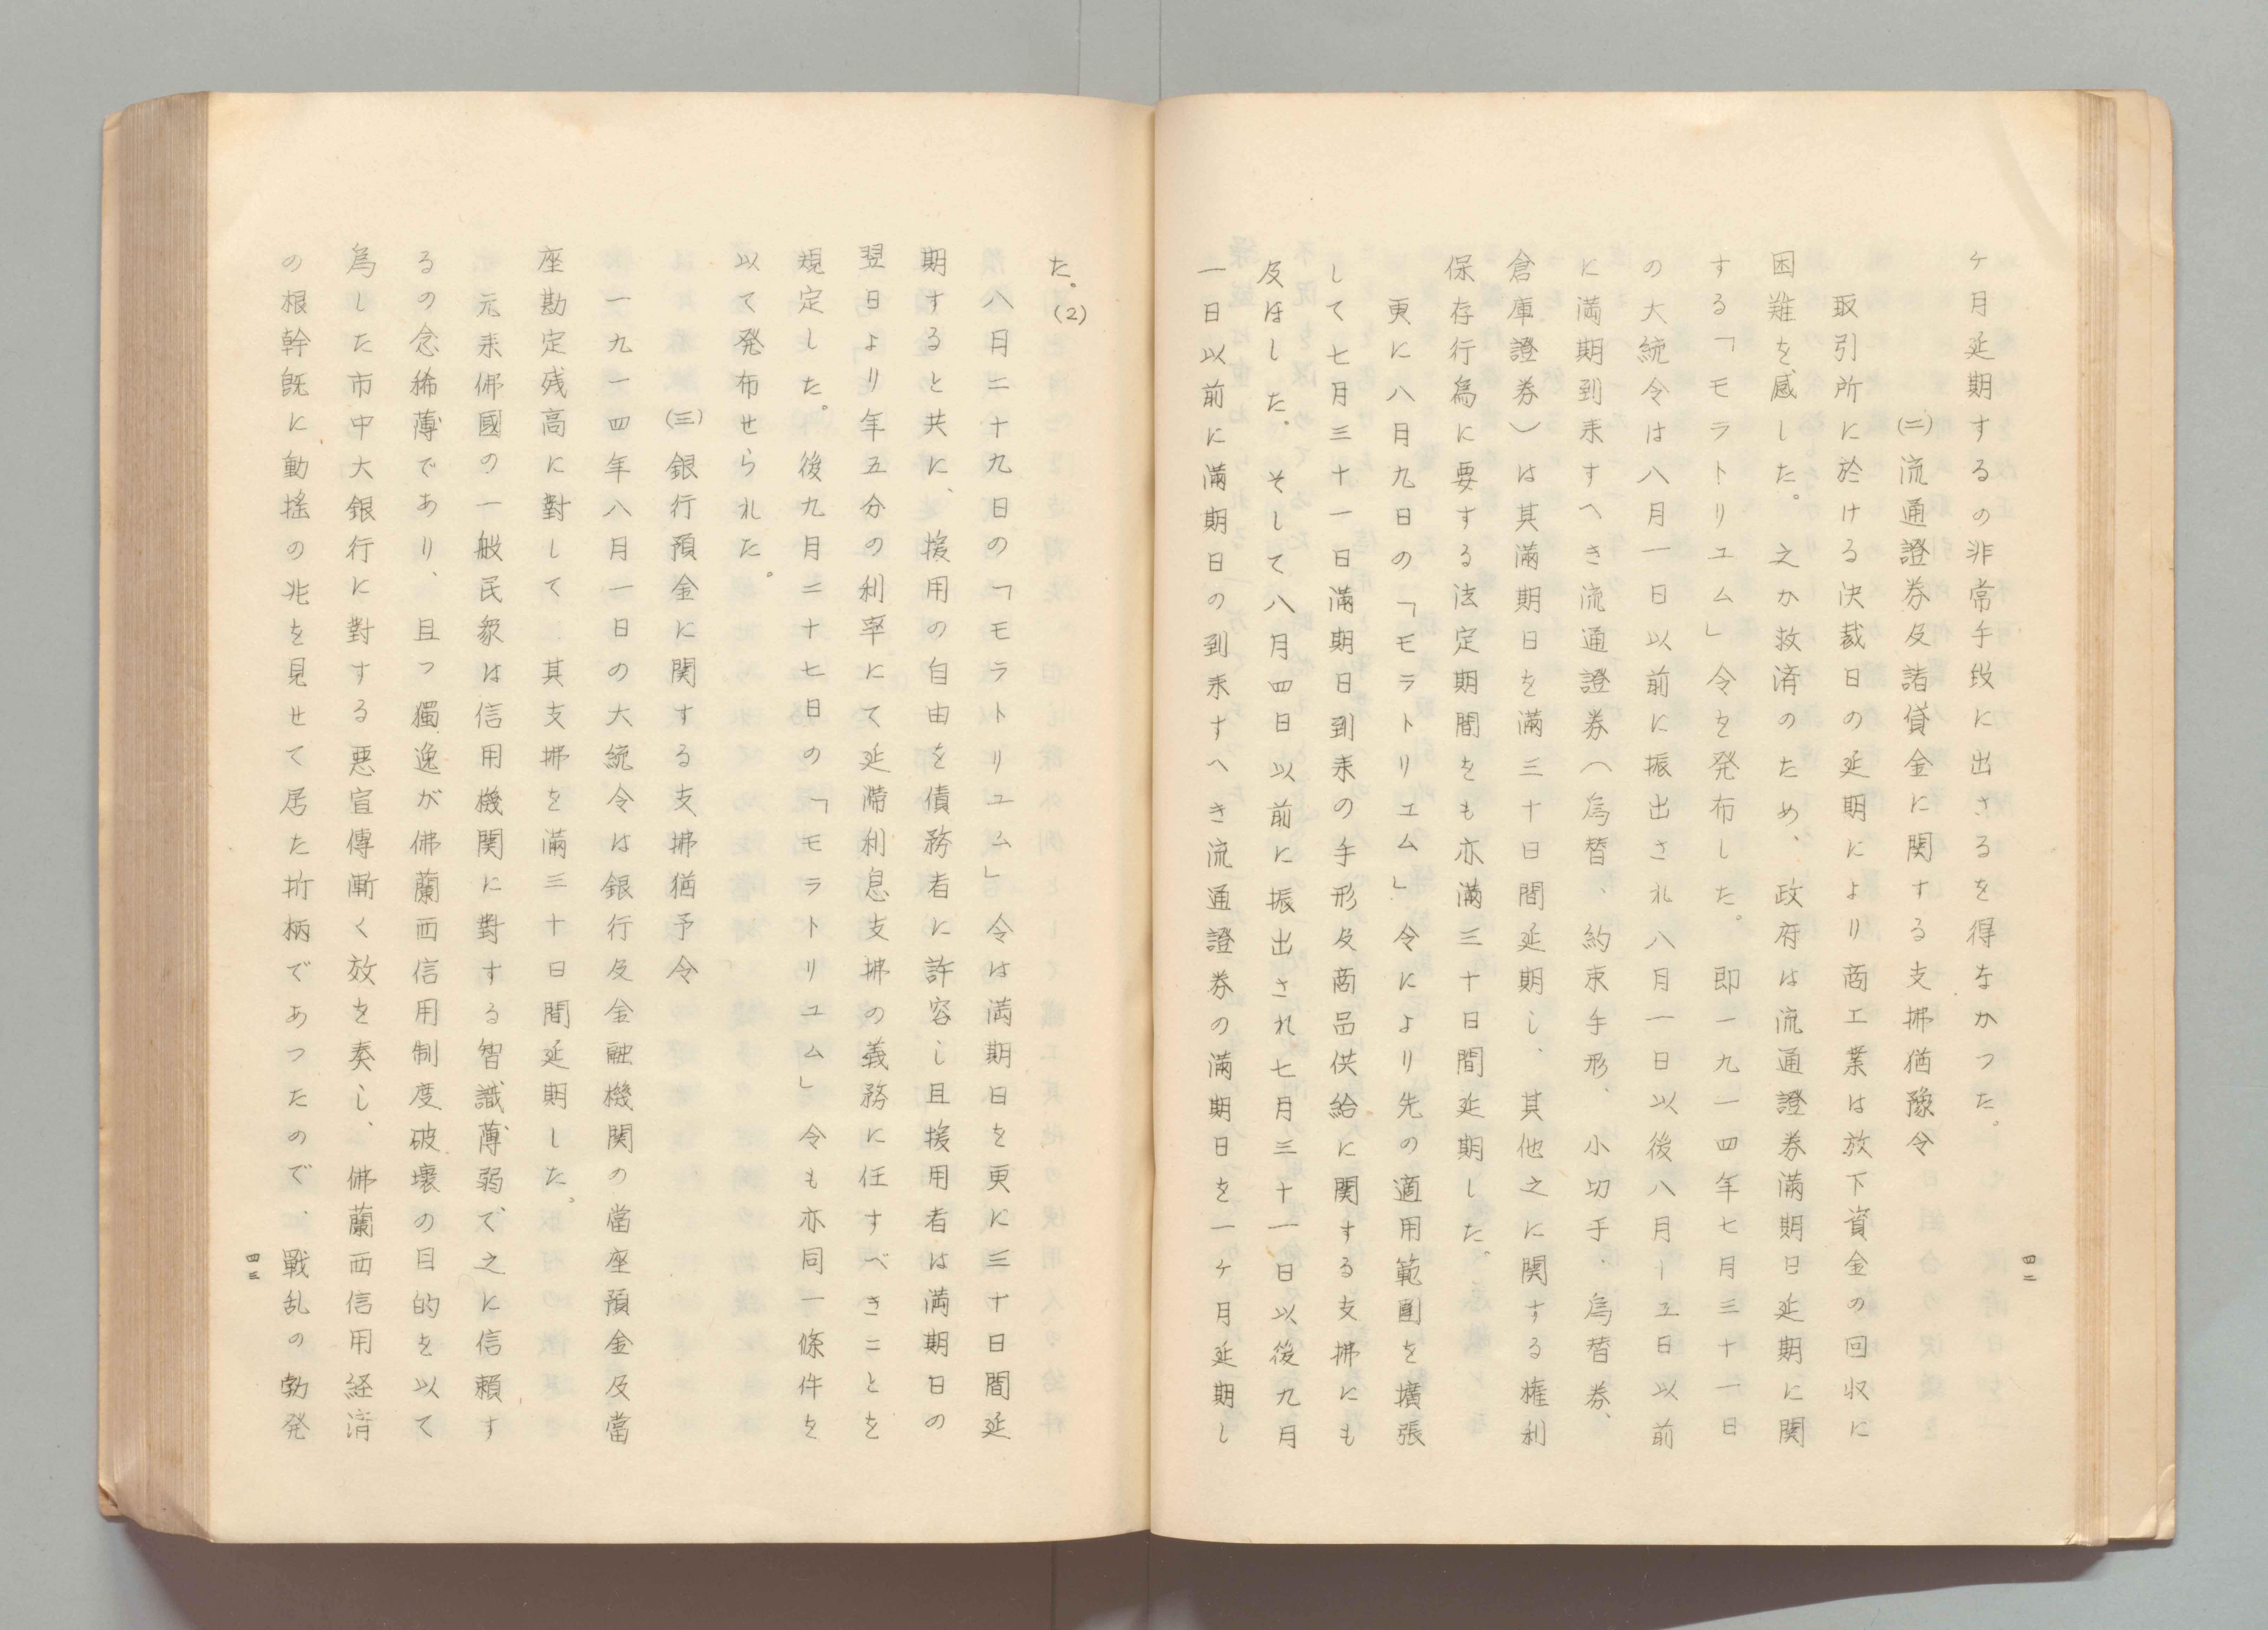 ケ月延期するの非常手段に出さるを得なかつた。
(二)流通證券及諸貸金に関する支拂猶豫令
取引所に於ける決裁日の延期により商工業は放下資金の回収に
困難を感した。之か救済のため、政府は流通證券満期日延期に関
する「モラトリユム」令を発布した。即一九一四年七月三十一日
の大統令は八月一日以前に振出され八月一日以後八月十五日以前
に満期到来すへき流通證券(為替、約束手形、小切手、為替券、
倉庫證券)は其満期日を満三十日間延期し、其他之に関する権利
保存行為に要する法定期間をも亦満三十日間延期した。
更に八月九日の「モラトリユム」令により先の適用範圍を擴張
して七月三十一日満期日到来の手形及商品供給に関する支拂にも
及ほした。そして八月四日以前に振出され七月三十一日以後九月
一日以前に満期日の到来すへき流通證券の満期日を一ケ月延期し
四二
た。(2)
八月二十九日の「モラトリユム」令は満期日を更に三十日間延
期すると共に、援用の自由を債務者に許容し且援用者は満期日の
翌日より年五分の利率にて延滞利息支拂の義務に任すべきことを
規定した。後九月二十七日の「モラトリユム」令も亦同一條件を
以て発布せられた。
(三)銀行預金に関する支拂猶予令
一九一四年八月一日の大統令は銀行及金融機関の當座預金及當
座勘定残高に對して其支拂を満三十日間延期した。
元来佛國の一般民衆は信用機関に對する智識薄弱で之に信頼す
るの念稀薄であり、且つ獨逸が佛蘭西信用制度破壞の目的を以て
為した市中大銀行に對する悪宣傳漸く效を奏し、佛蘭西信用経済
の根幹既に動揺の兆を見せて居た折柄であつたので、戰乱の勃発
四三